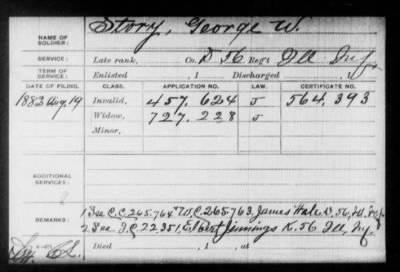 NAME OF SOLDIER: Story, George W.
SERVICE: Late rank, Co. D 56 Reg't Ill Inf
TERM OF SERVICE: Enlisted , 1 Discharged , 1
DATE OF FILING. CLASS. APPLICATION NO. LAW. CERTIFICATE NO.
1882 Aug. 19 Invalid, 457.624 J 564.393
Widow, 727.228 J
Minor,
ADDITIONAL SERVICES:
REMARKS: 1 See C.C. 265.764. W.C. 265763, James Hale D. 56, Ill. Inf.
2 See I.C. 22351, Elbert Jennings K. 56 Ill, Inf.
Died , 1 , at